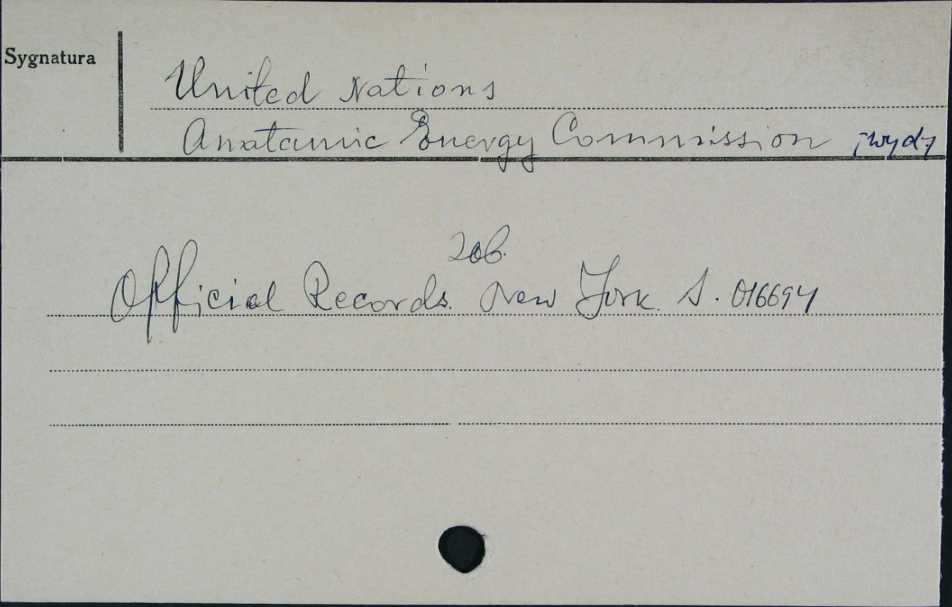 Sygnatura
United Nations
Anatamic Energy Commission [wyd]
Zob.
Official Records. New York. S. 016694